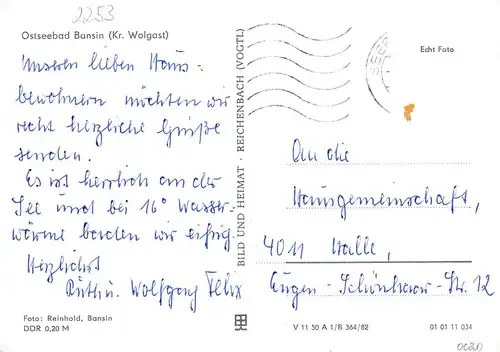 2253
Ostseebad Bansin (Kr. Wolgast)
Unseren lieben Haus-
bewohnern möchten wir
recht herzliche Grüße
senden.
Es ist herrlich an der
See und bei 16° Wasser-
wärme baden wir eifrig.
Herzlichst
Ruth u. Wolfgang Felix
Foto: Reinhold, Bansin
DDR 0,20 M
BILD UND HEIMAT · REICHENBACH (VOGTL)
Echt Foto
An die
Hausgemeinschaft,
4011 Halle,
Eugen-Schönhaar-Str. 12
V 11 50 A 1/B 364/82
01 01 11 034
0020